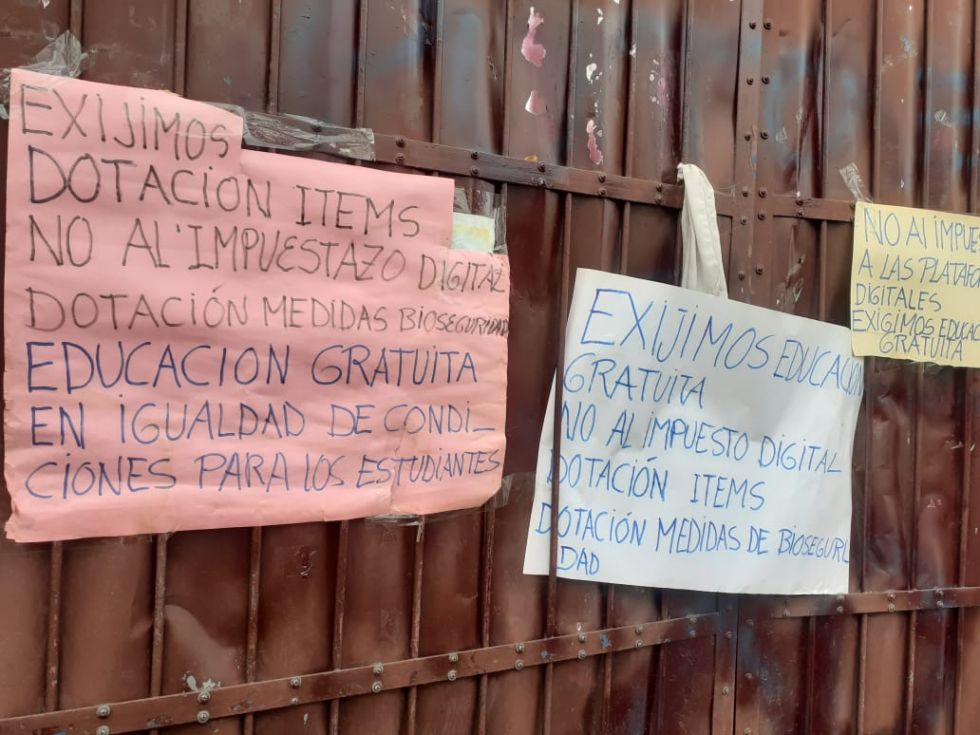 EXIJIMOS
DOTACION ITEMS
NO AL'IMPUESTAZO DIGITAL
DOTACIÓN MEDIDAS BIOSEGURIDAD
EDUCACION GRATUITA
EN IGUALDAD DE CONDI-
CIONES PARA LOS ESTUDIANTES
EXIJIMOS EDUCACION
GRATUITA
NO AL IMPUESTO DIGITAL
DOTACIÓN ITEMS
DOTACIÓN MEDIDAS DE BIOSEGURI
DAD
NO Al IMPUE
A LAS PLATAFO
DIGITALES
EXIGIMOS EDUCAC
GRATUITA